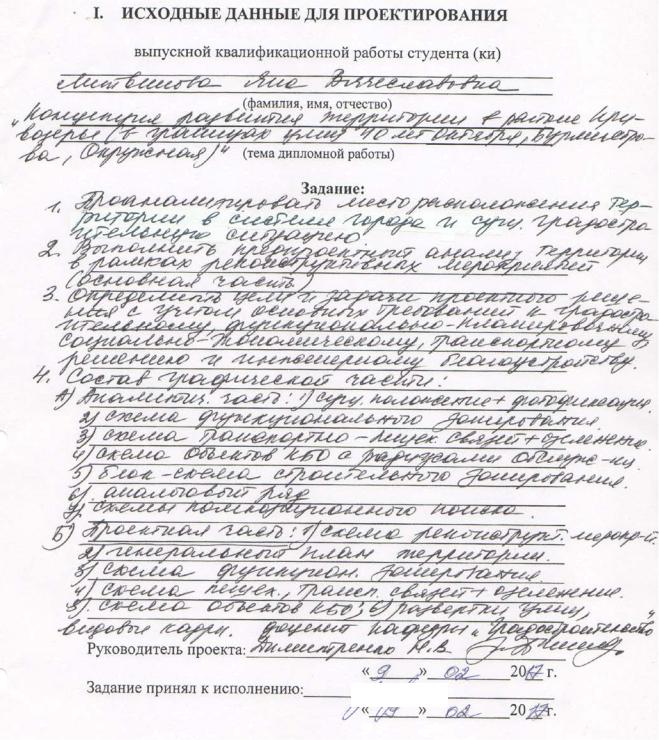 I. ИСХОДНЫЕ ДАННЫЕ ДЛЯ ПРОЕКТИРОВАНИЯ
выпускной квалификационной работы студента (ки)
Литвинова Яна Вячеславовна
(фамилия, имя, отчество)
„Концепция развития территории в районе Кри-
возерье (в границах улиц 40 лет октября, Бурмистро-
ва, Окружная)"
(тема дипломной работы)
Задание:
1. Проанализировать место расположения тер-
ритории в системе города и сущ. градостро-
ительную ситуацию.
2. Выполнить предпроектный анализ территории
в рамках реконструктивных мероприятий
(основная часть)
3. Определить цели и задачи проектного реше-
ния с учетом основных требований к градостро-
ительному, функционально-планировочному,
социально-экономическому, транспортному
решению и инженерному благоустройству.
4. Состав графической части:
А) Аналитич. часть: 1) сущ. положение + фотофиксация.
2) схема функционального зонирования.
3) схема транспортно-пешех. связей + озеленение.
4) схема объектов КБО с радиусами обслуж-ия.
5) блок-схема строительного зонирования.
6) аналоговый ряд
7) схемы композиционного поиска.
Б) Проектная часть: 1) схема реконструкт. меропр-й.
2) генеральный план территории.
3) схема функцион. зонирования
4) схема пешех., трансп. связей + озеленение.
5) схема объектов КБО; 6) развертки улиц,
видовые кадры. доцент кафедры „Градостроительство"
Руководитель проекта: Н.В.
« 9 » 02 2017 г.
Задание принял к исполнению:
« 09 » 02 2017 г.